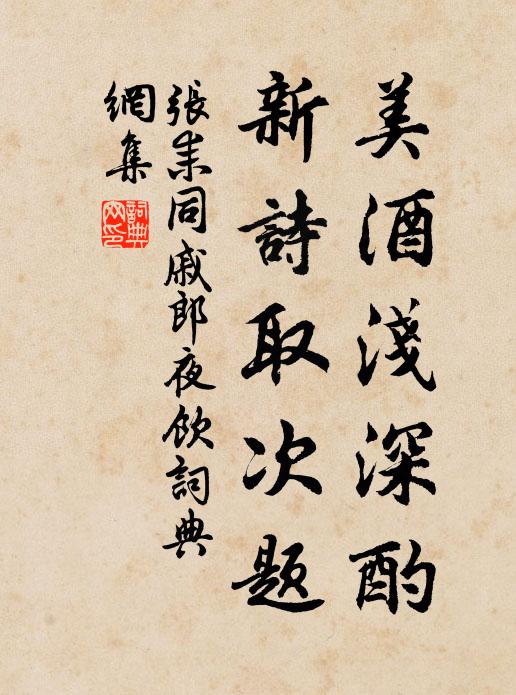 美酒淺深酌
新詩取次題
張耒同戚郎夜飲詞典
網集
詞典
网印